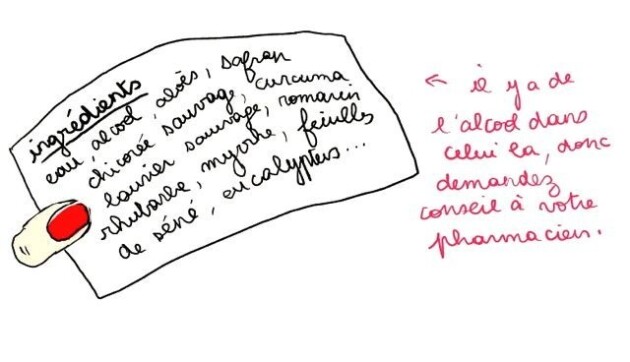 ingrédients
eau, alcool, aloès, safran
chicorée sauvage, curcuma
laurier sauvage, romarin
rhubarbe, myrrhe, feuilles
de séné, eucalyptus...
← il y a de
l'alcool dans
celui la, donc
demandez
conseil à votre
pharmacien.